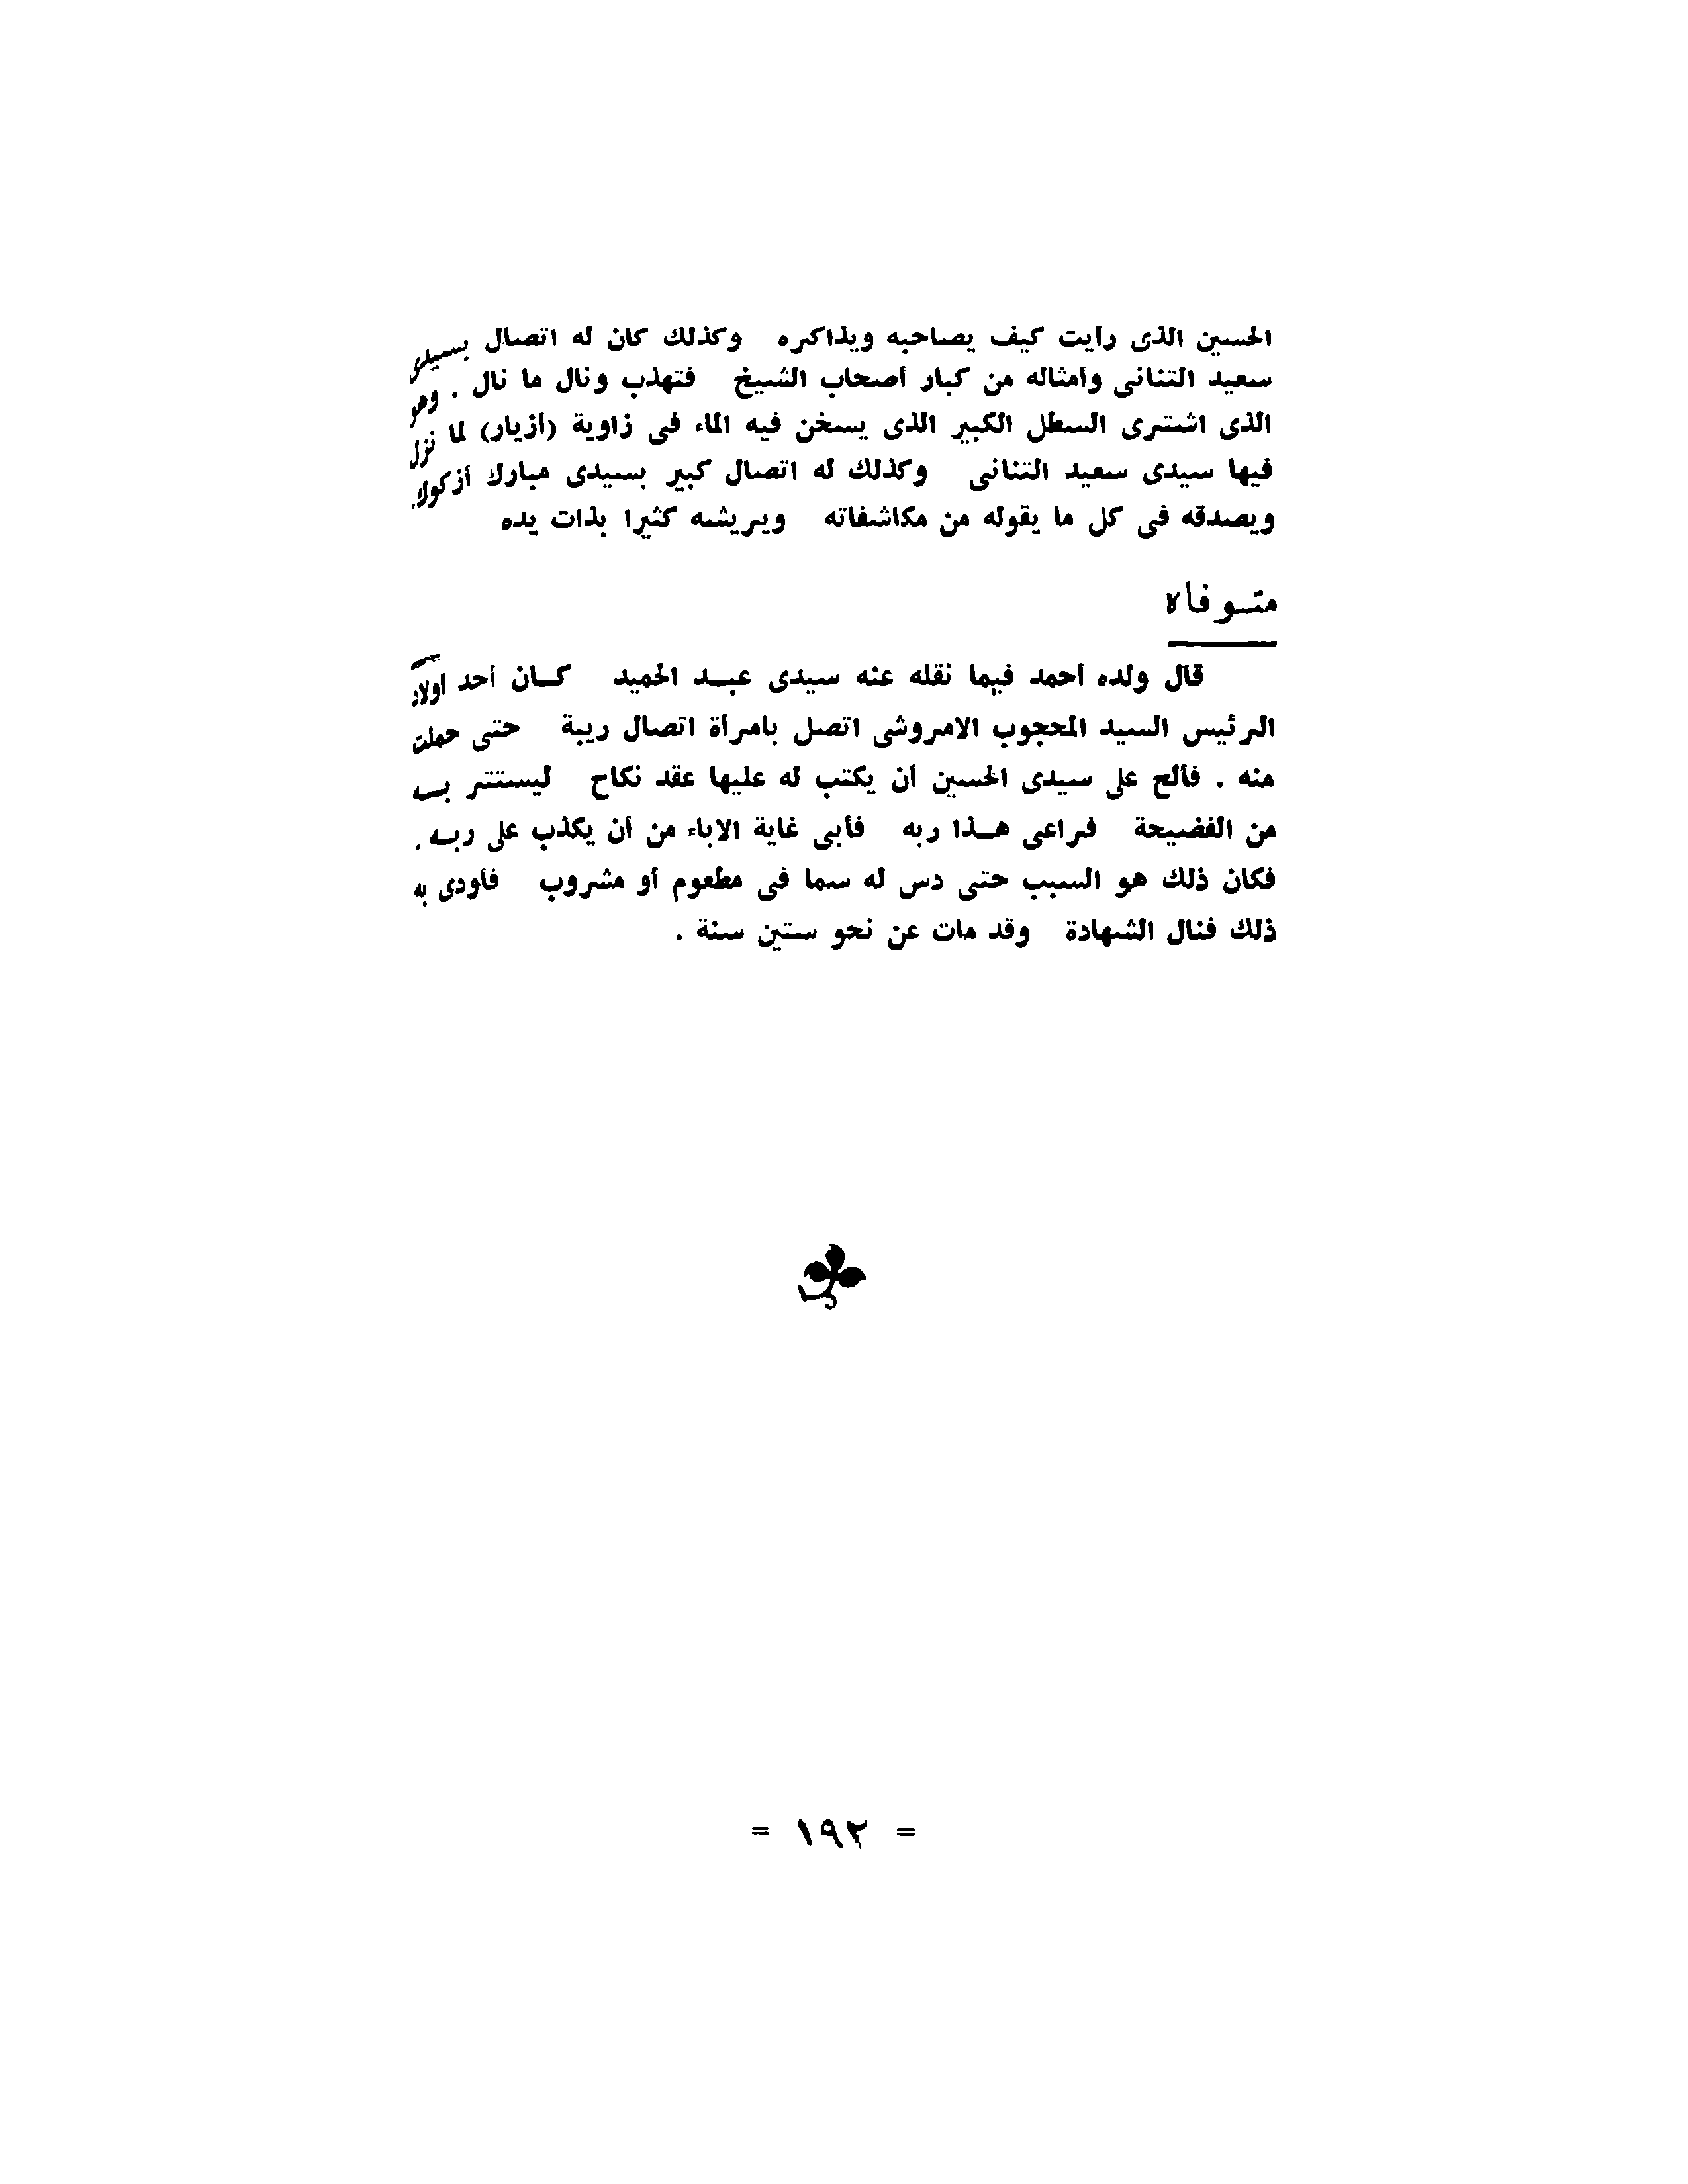 الحسين الذى رأيت كيف يصاحبه ويذاكره وكذلك كان له اتصال بسيدى
سعيد التنانى وأمثاله من كبار أصحاب الشيخ فتهذب ونال ما نال . وهو
الذى اشترى السطل الكبير الذى يسخن فيه الماء فى زاوية (أزيار) لما نزل
فيها سيدى سعيد التنانى وكذلك له اتصال كبير بسيدى مبارك أزكوك
ويصدقه فى كل ما يقوله من مكاشفاته ويريشه كثيرا بذات يده
متوفاه
قال ولده أحمد فيما نقله عنه سيدى عبد الحميد كان أحد أولاد
الرئيس السيد المحجوب الامروشى اتصل بامرأة اتصال ريبة حتى حملت
منه . فألح على سيدى الحسين أن يكتب له عليها عقد نكاح ليستتر به
من الفضيحة فراعى هذا ربه فأبى غاية الاباء من أن يكذب على ربه .
فكان ذلك هو السبب حتى دس له سما فى مطعوم أو مشروب فأودى به
ذلك فنال الشهادة وقد مات عن نحو ستين سنة .
= ١٩٢ =